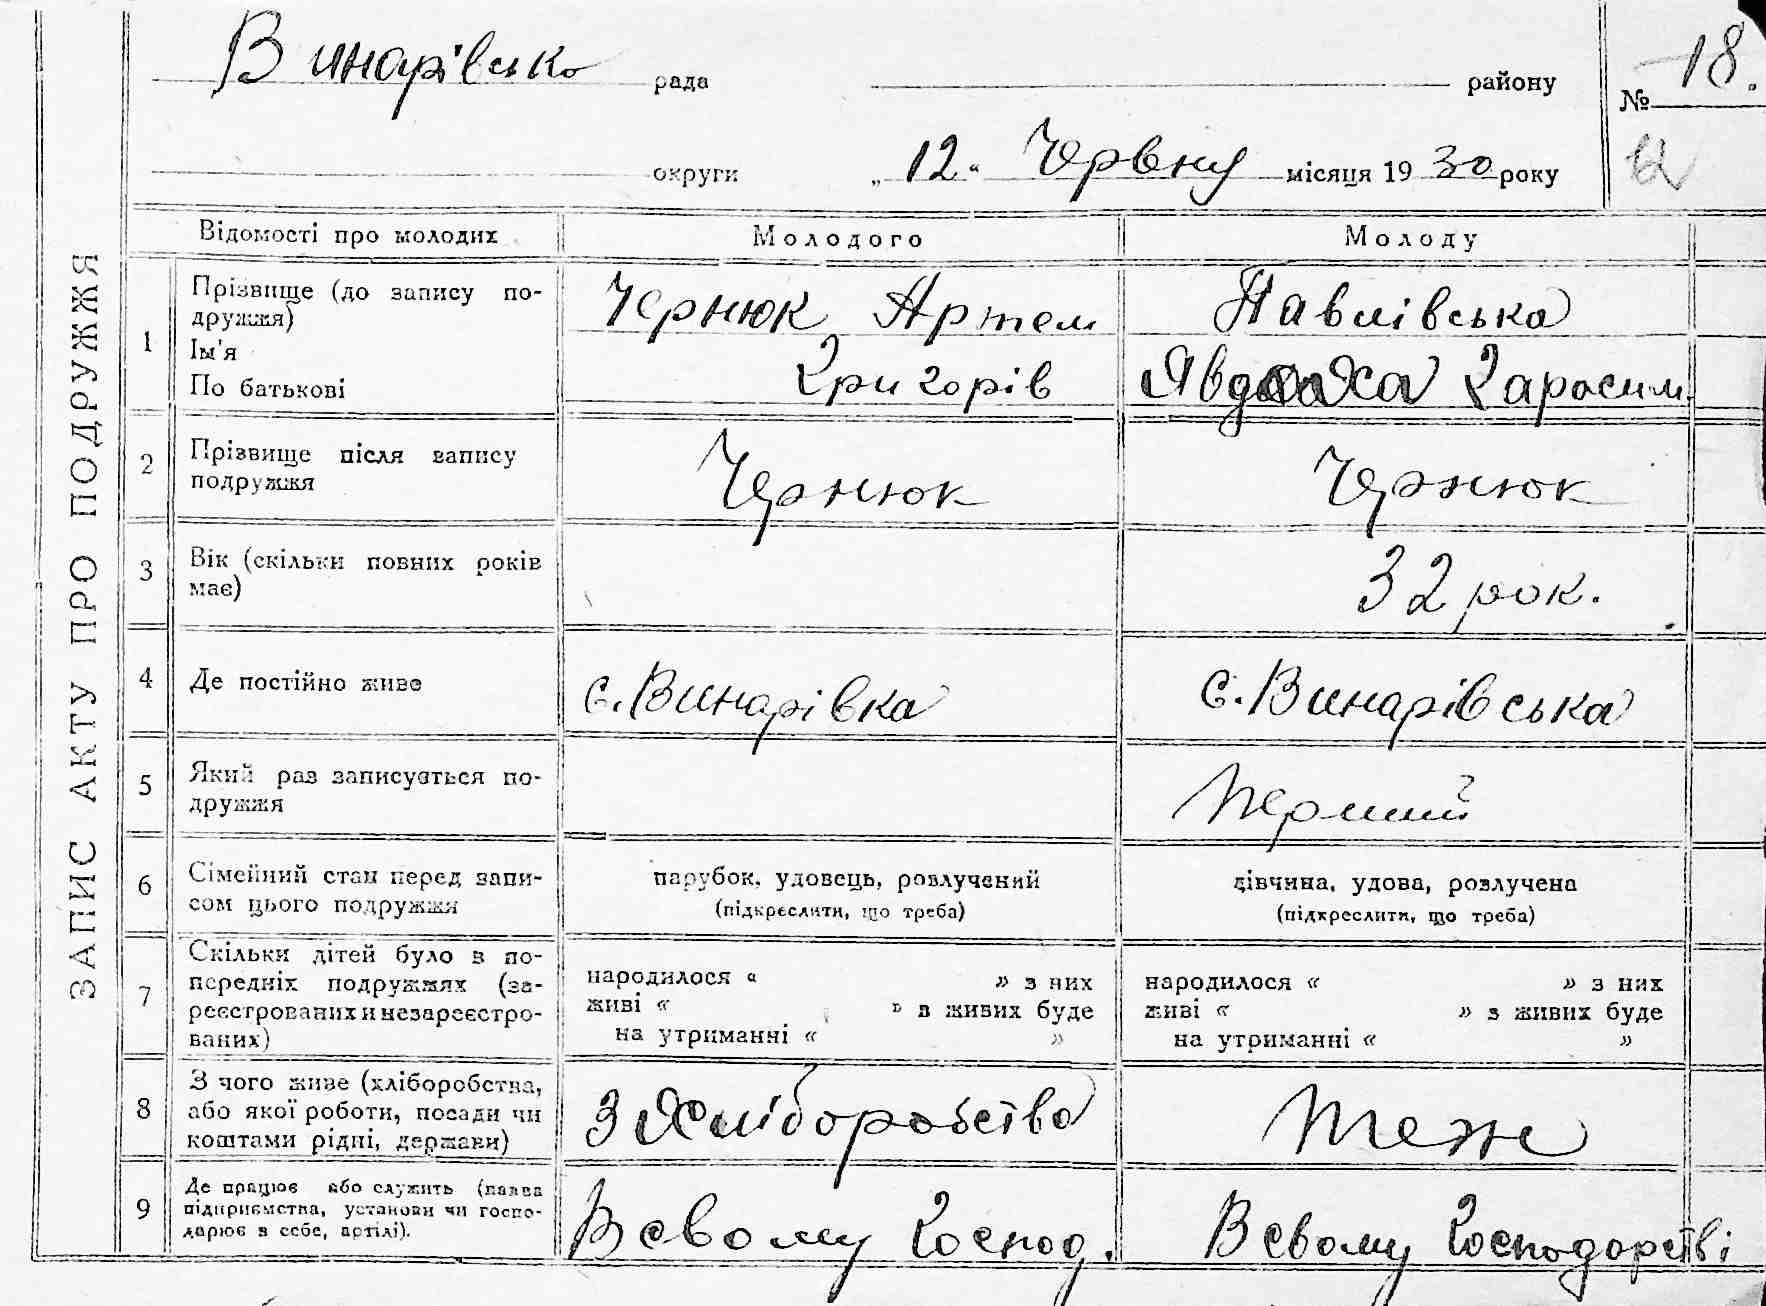 Винарівсько рада району № 18.
округи „ 12 “ Червну місяця 19 30 року
ЗАПИС АКТУ ПРО ПОДРУЖЖЯ
Відомості про молодих Молодого Молоду
1
Прізвище (до запису по-
дружжя)
Ім'я
По батькові
Чернюк Артем
Григорів
Павлівська
Явдоха Гарасим
2
Прізвище після запису
подружжя
Чернюк
Чернюк
3
Вік (скільки повних років
має)
32 рок.
4
Де постійно живе
с. Винарівка
с. Винарівська
5
Який раз записується по-
дружжя
Перший
6
Сімейний стан перед запи-
сом цього подружжя
парубок, удовець, розлучений
(підкреслити, що треба)
дівчина, удова, розлучена
(підкреслити, що треба)
7
Скільки дітей було в по-
передніх подружжях (за-
реєстрованих и незареєстро-
ваних)
народилося « » з них
живі « » з живих буде
на утриманні « »
народилося « » з них
живі « » з живих буде
на утриманні « »
8
З чого живе (хліборобства,
або якої роботи, посади чи
коштами рідні, держави)
З Хліборобства
Теж
9
Де працює або служить (назва
підприємства, установи чи госпо-
дарює в себе, артілі).
В свому Господ.
В свому Господарстві